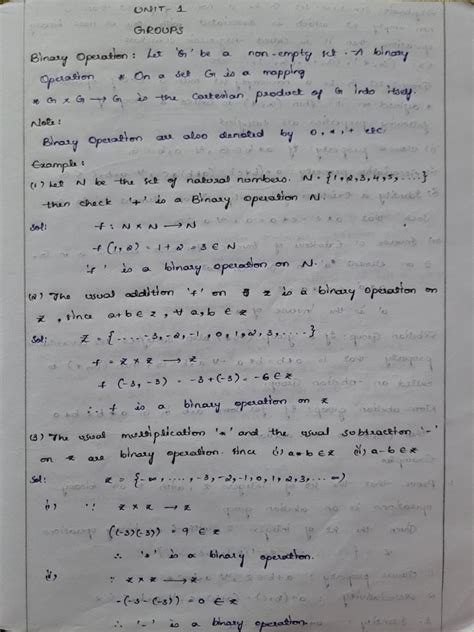 UNIT-1
GROUPS
Binary Operation: Let 'G' be a non-empty set. A binary
Operation * On a set G is a mapping
* G x G → G is the Cartesian product of G into itself.
Note:
Binary Operation are also denoted by 0, *, + etc
Example:
(1) Let N be the set of natural numbers. N = {1,2,3,4,5,....}
then check '+' is a Binary operation N.
Sol: f : N x N → N
f(1,2) = 1+2 = 3 ∈ N
'f' is a binary operation on N.
(2) The usual addition 'f' on z is a binary operation on
z, since a+b ∈ z, ∀ a,b ∈ z
Sol: Z = {....-3,-2,-1,0,1,2,3,....}
f = z x z → z
f(-3,-3) = -3+(-3) = -6 ∈ z
∴ f is a binary operation on z
(3) The usual multiplication '*' and the usual subtraction '-'
on z are binary operation. since i) a*b ∈ z ii) a-b ∈ z
Sol: z = {-∞,...., -3,-2,-1,0,1,2,3,... ∞)
i) ∵ z x z → z
((-3)(-3)) = 9 ∈ z
∴ '*' is a binary operation.
ii) ∵ z x z → z
-(-3-(-3)) = 0 ∈ z
∴ '-' is a binary operation.